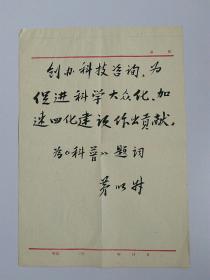 创办科技咨询，为
促进科学大众化、加
速四化建设作出贡献。
为《科普》题词
茅以升